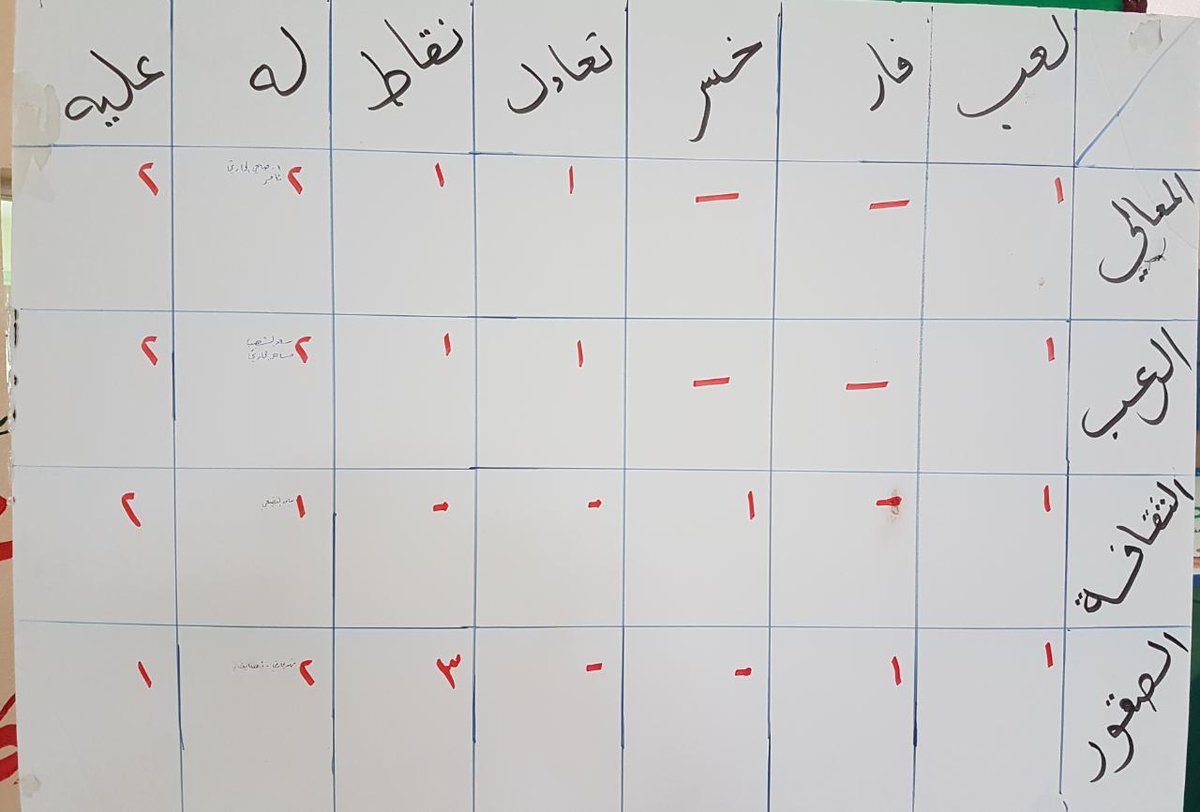 لعب فاز خسر تعادل نقاط له عليه
المعالي ١ — — ١ ١ ٢ ٢
الرعب ١ — — ١ ١ ٢ ٢
الثقافة ١ - ١ - - ١ ٢
الصقور ١ ١ - - ٣ ٢ ١